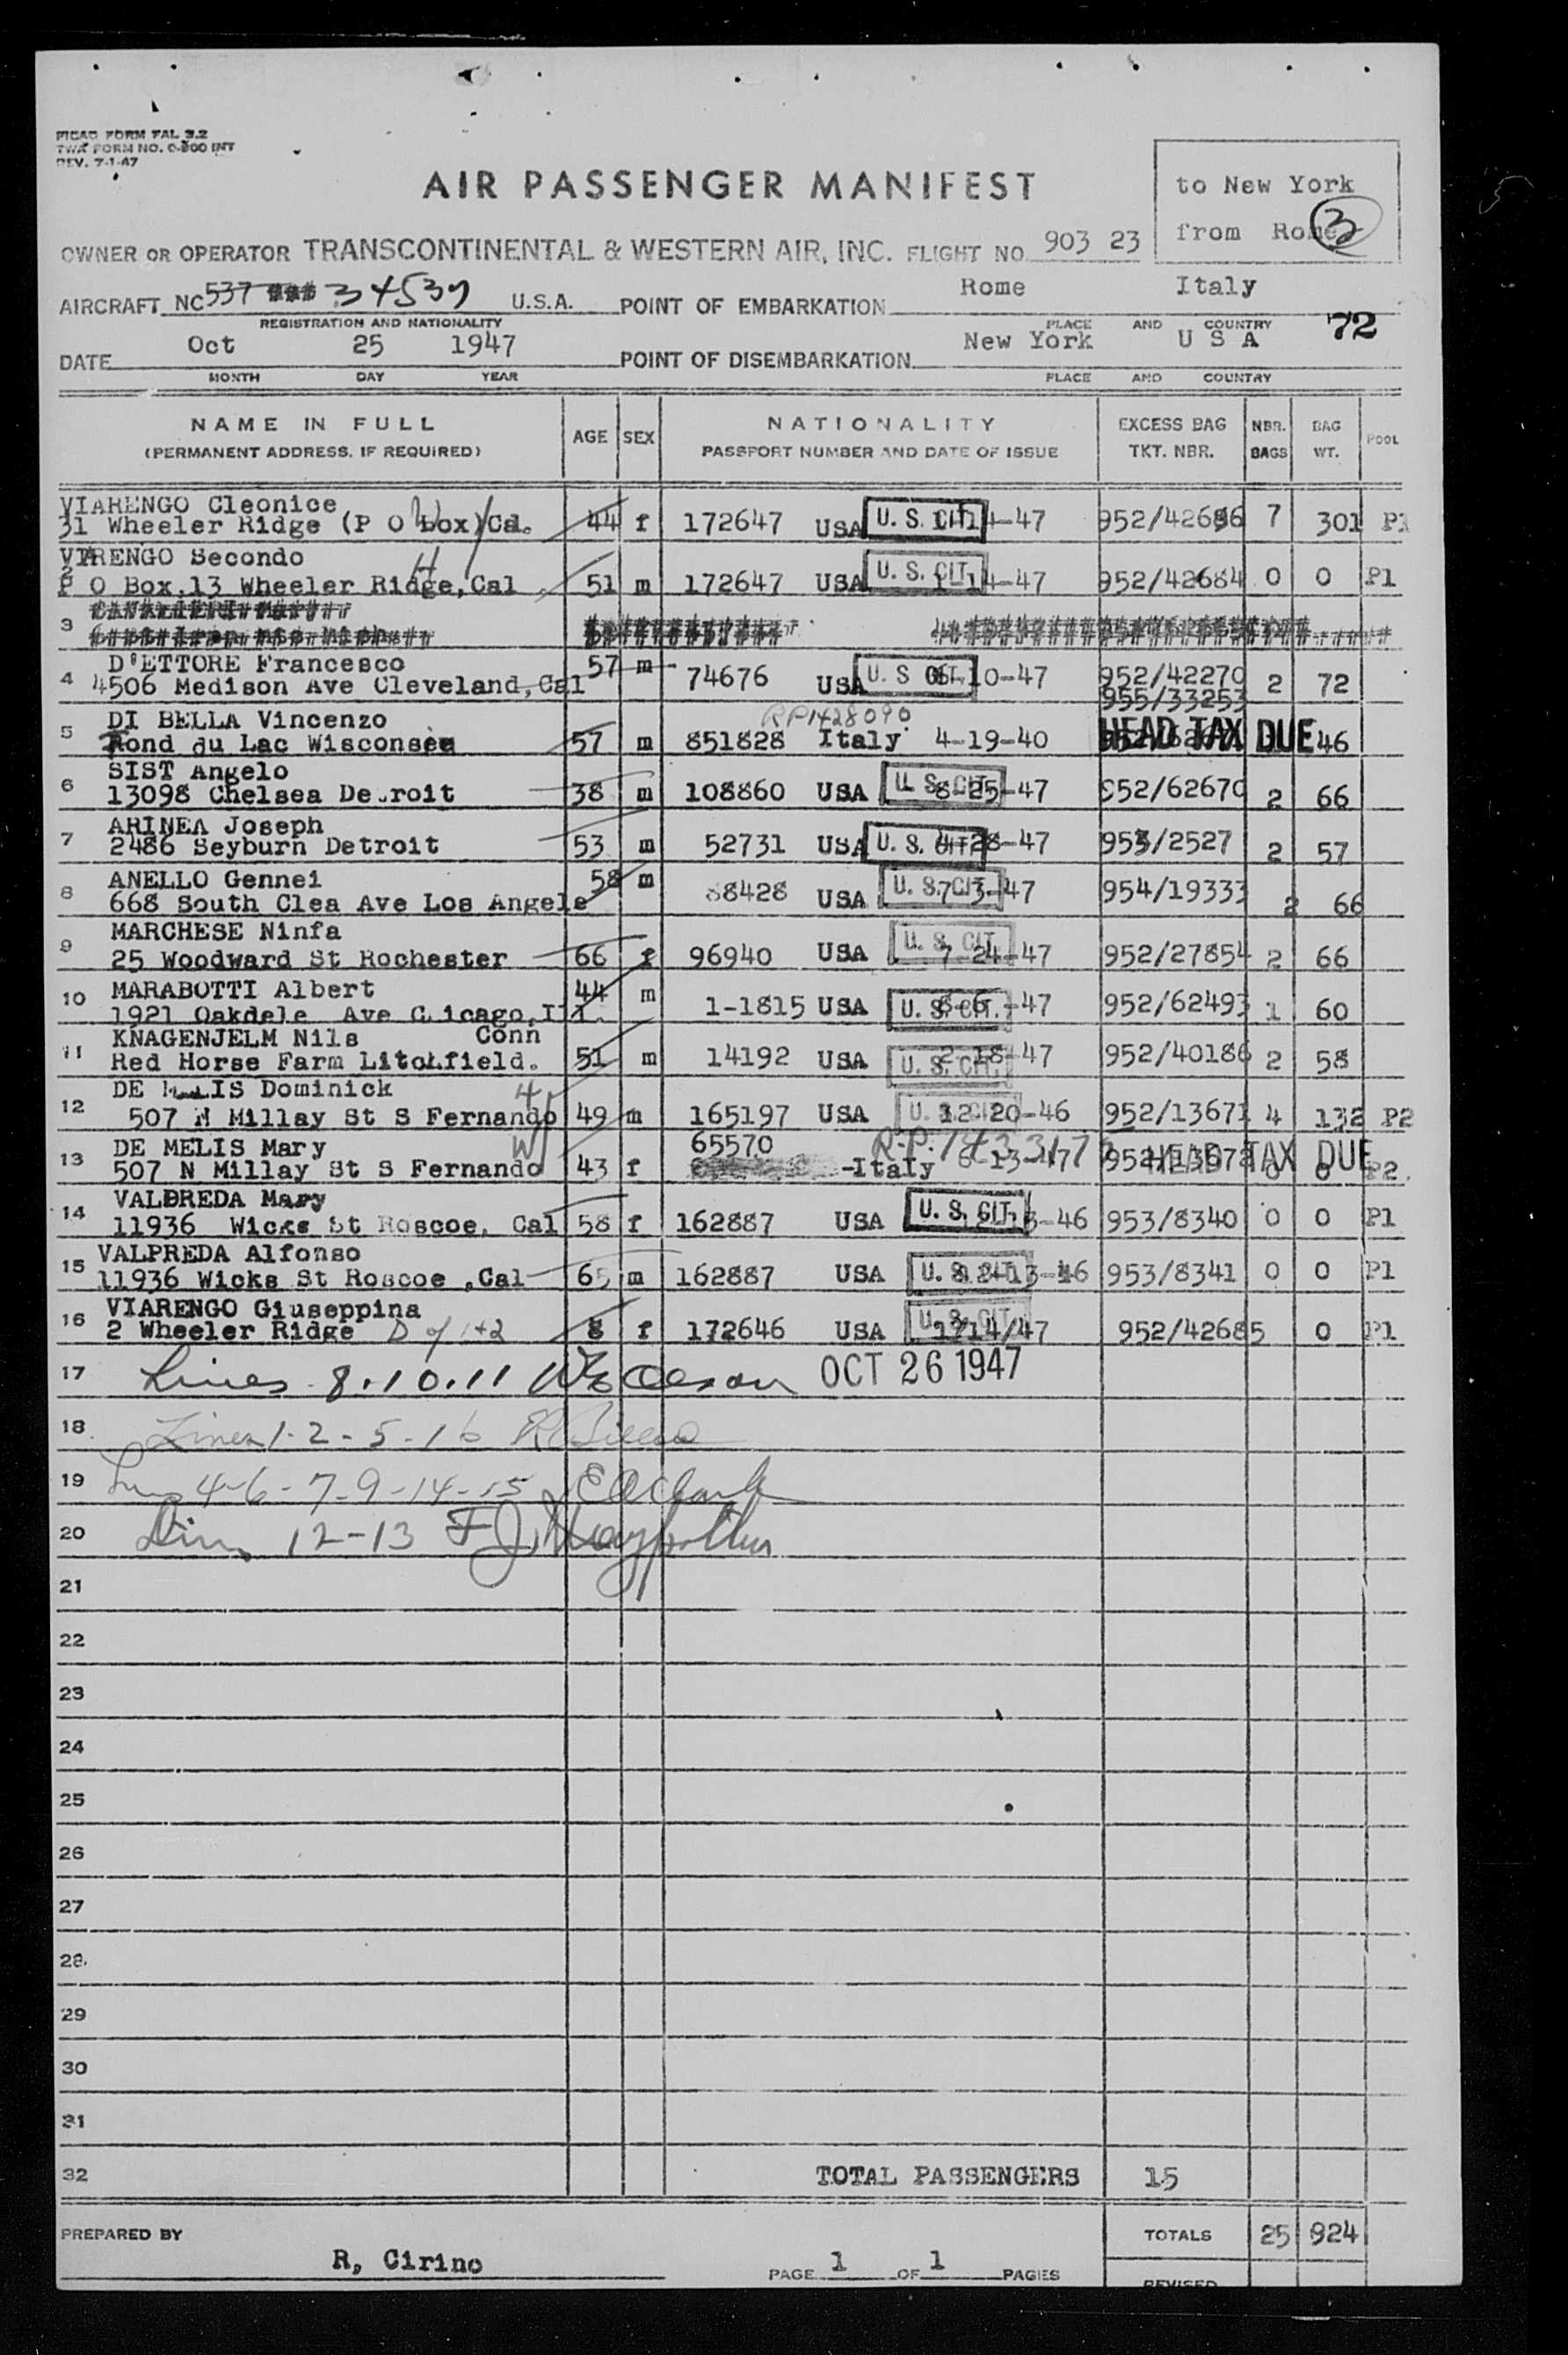 PICAO FORM FAL 3.2
TWA FORM NO. O-800 INT
REV. 7-1-47
AIR PASSENGER MANIFEST
to New York
from Rome
3
OWNER OR OPERATOR TRANSCONTINENTAL & WESTERN AIR, INC. FLIGHT NO. 903 23
AIRCRAFT NC 537 34537 U.S.A. POINT OF EMBARKATION Rome Italy
REGISTRATION AND NATIONALITY PLACE AND COUNTRY 72
DATE Oct 25 1947 POINT OF DISEMBARKATION New York U S A
MONTH DAY YEAR PLACE AND COUNTRY
NAME IN FULL AGE SEX NATIONALITY EXCESS BAG NBR. BAG POOL
(PERMANENT ADDRESS, IF REQUIRED) PASSPORT NUMBER AND DATE OF ISSUE TKT. NBR. BAGS WT.
VIARENGO Cleonice W
31 Wheeler Ridge (P O box)Cal. 44 f 172647 USA U. S. CIT. 1-14-47 952/42686 7 301 P1
VIARENGO Secondo H
P O Box.13 Wheeler Ridge,Cal 51 m 172647 USA U. S. CIT. 1-14-47 952/42684 0 0 P1
3
D'ETTORE Francesco 57 m
4 4506 Medison Ave Cleveland,Cal 74676 USA U. S CIT. 10-47 952/42270 2 72
955/33253
DI BELLA Vincenzo RP1428090
5 Fond du Lac Wisconsen 57 m 851828 Italy 4-19-40 HEAD TAX DUE 46
SIST Angelo
6 13098 Chelsea Detroit 38 m 108860 USA U. S. CIT. 8-25-47 952/62670 2 66
ARINEA Joseph
7 2486 Seyburn Detroit 53 m 52731 USA U. S. CIT. 4-28-47 953/2527 2 57
ANELLO Gennei 58 m
8 668 South Clea Ave Los Angele 88428 USA U. S. CIT. 7-3-47 954/19333 2 66
MARCHESE Ninfa
9 25 Woodward St Rochester 66 f 96940 USA U. S. CIT. 7-24-47 952/27854 2 66
MARABOTTI Albert 44 m
10 1921 Oakdele Ave Chicago,Ill. 1-1815 USA U. S. CIT. -47 952/62493 1 60
KNAGENJELM Nils Conn
11 Red Horse Farm Litchfield. 51 m 14192 USA U. S. CIT. 2-18-47 952/40186 2 58
DE LIS Dominick H
12 507 N Millay St S Fernando 49 m 165197 USA U. S. CIT. 12-20-46 952/13671 4 132 P2
DE MELIS Mary W 65570 R.P.
13 507 N Millay St S Fernando 43 f -Italy 6-13-47 HEAD TAX DUE 0 0 P2.
VALBREDA Mary
14 11936 Wicks St Roscoe, Cal 58 f 162887 USA U. S. CIT. -46 953/8340 0 0 P1
VALPREDA Alfonso
15 11936 Wicks St Roscoe ,Cal 65 m 162887 USA U. S. CIT. 12-13-46 953/8341 0 0 P1
VIARENGO Giuseppina
16 2 Wheeler Ridge D of 1+2 8 f 172646 USA U. S. CIT. 1/14/47 952/42685 0 P1
17 Lines 8.10.11 OCT 26 1947
18 Lines 1-2-5-16
19 Lines 4-6-7-9-14-15 E A Clark
20 Lines 12-13 F J
21
22
23
24
25
26
27
28
29
30
31
32 TOTAL PASSENGERS 15
PREPARED BY TOTALS 25 924
R, Cirino PAGE 1 OF 1 PAGES
REVISED